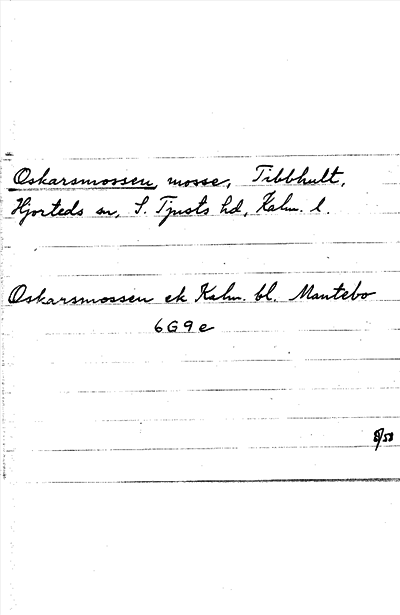 Oskarsmossen, mosse, Tibbhult,
Hjorteds sn, S. Tjusts hd, Kalm. l.
Oskarsmossen ek Kalm. bl. Mantebo
6G9e